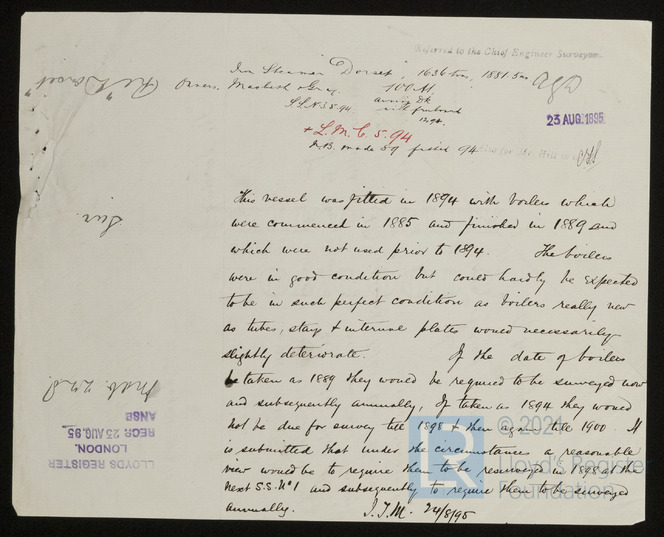 Referred to the Chief Engineer Surveyor.
Irn Steamer "Dorset", 1636 tons, 1881. 5 mo
Owners. Macbeth & Gray 100 A1.
S.S. No 3. 5. 94 Awning Dk
with freeboard
12.94.
23 AUG. 1895
+ L.M.C. 5. 94
N.B. made 89 fitted 94
Re "Dorset"
This vessel was fitted in 1894 with boilers which
were commenced in 1885 and finished in 1889 and
which were not used prior to 1894. The boilers
were in good condition but could hardly be expected
to be in such perfect condition as boilers really new
as tubes, stays & internal plates would necessarily
slightly deteriorate. If the date of boilers
be taken as 1889 they would be required to be surveyed now
and subsequently annually, If taken as 1894 they would
not be due for survey till 1898 & then again till 1900. It
is submitted that under the circumstances a reasonable
view would be to require them to be resurveyed in 1898 at the
next S.S. No 1 and subsequently to require them to be surveyed
annually. J.T.M. 24/8/95
LLOYDS REGISTER
LONDON.
RECD 23 AUG. 95
ANSD
© 2021
Lloyd's Register
Foundation